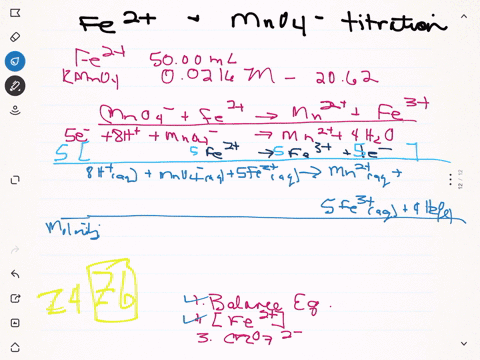 Fe2+ + MnO4- titration
Fe2+ 50.00 mL
KMnO4 0.0216 M - 20.62
MnO4- + Fe2+ → Mn2+ + Fe3+
5e- + 8H+ + MnO4- → Mn2+ + 4H2O
5[ 5Fe2+ → 5Fe3+ + 5e- ]
8H+(aq) + MnO4-(aq) + 5Fe2+(aq) → Mn2+(aq) +
5Fe3+(aq) + 4H2O(l)
Molarity
Z4 Z6
1. Balance Eq.
2. [Fe2+]
3. Cr2O7 2-
12 / 12